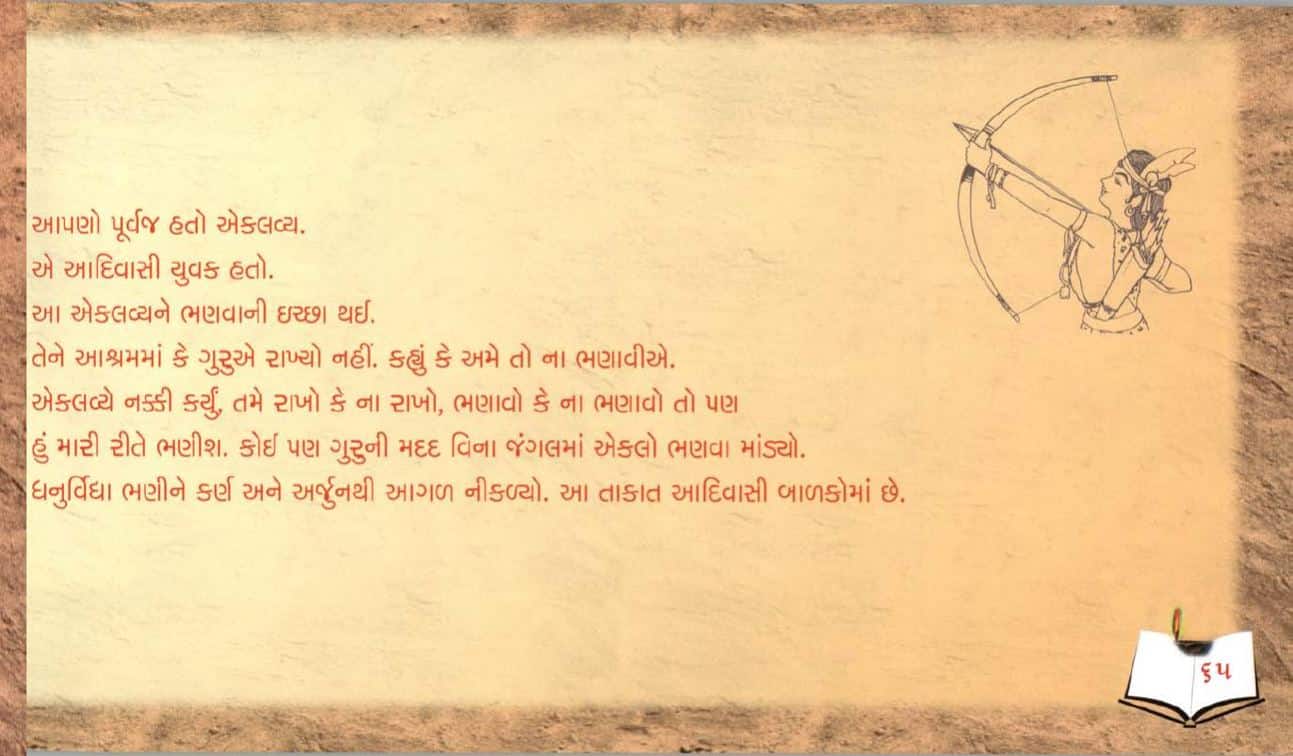 આપણો પૂર્વજ હતો એકલવ્ય.
એ આદિવાસી યુવક હતો.
આ એકલવ્યને ભણવાની ઇચ્છા થઈ.
તેને આશ્રમમાં કે ગુરુએ રાખ્યો નહીં. કહ્યું કે અમે તો ના ભણાવીએ.
એકલવ્યે નક્કી કર્યું, તમે રાખો કે ના રાખો, ભણાવો કે ના ભણાવો તો પણ
હું મારી રીતે ભણીશ. કોઈ પણ ગુરુની મદદ વિના જંગલમાં એકલો ભણવા માંડ્યો.
ધનુર્વિદ્યા ભણીને કર્ણ અને અર્જુનથી આગળ નીકળ્યો. આ તાકાત આદિવાસી બાળકોમાં છે.
૬૫